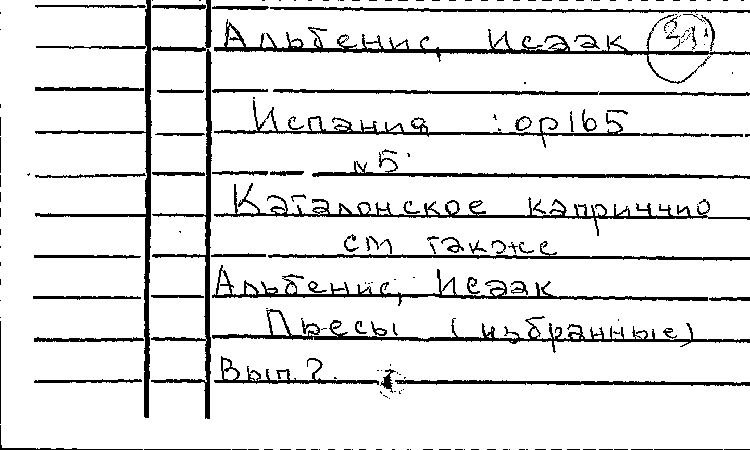 Альбенис, Исаак
Испания : op165
N5
Каталонское каприччио
см также
Альбенис, Исаак
Пьесы (избранные)
Вып.2.